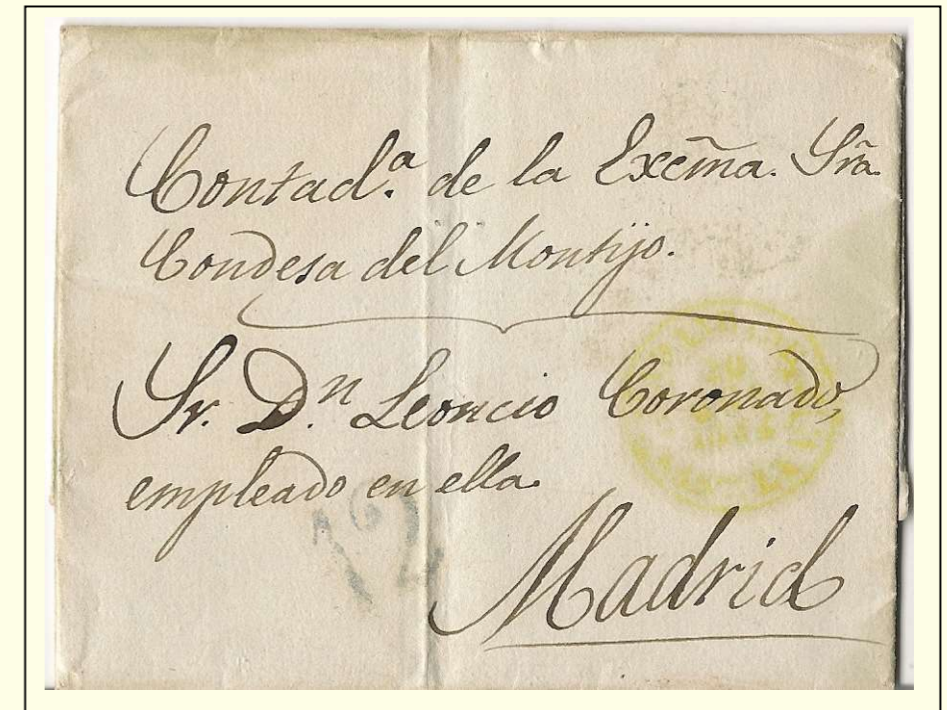 Contad.ª de la Excm̃a. Srã.
Condesa del Montijo.
Sr. Dn. Leoncio Coronado,
empleado en ella.
Madrid